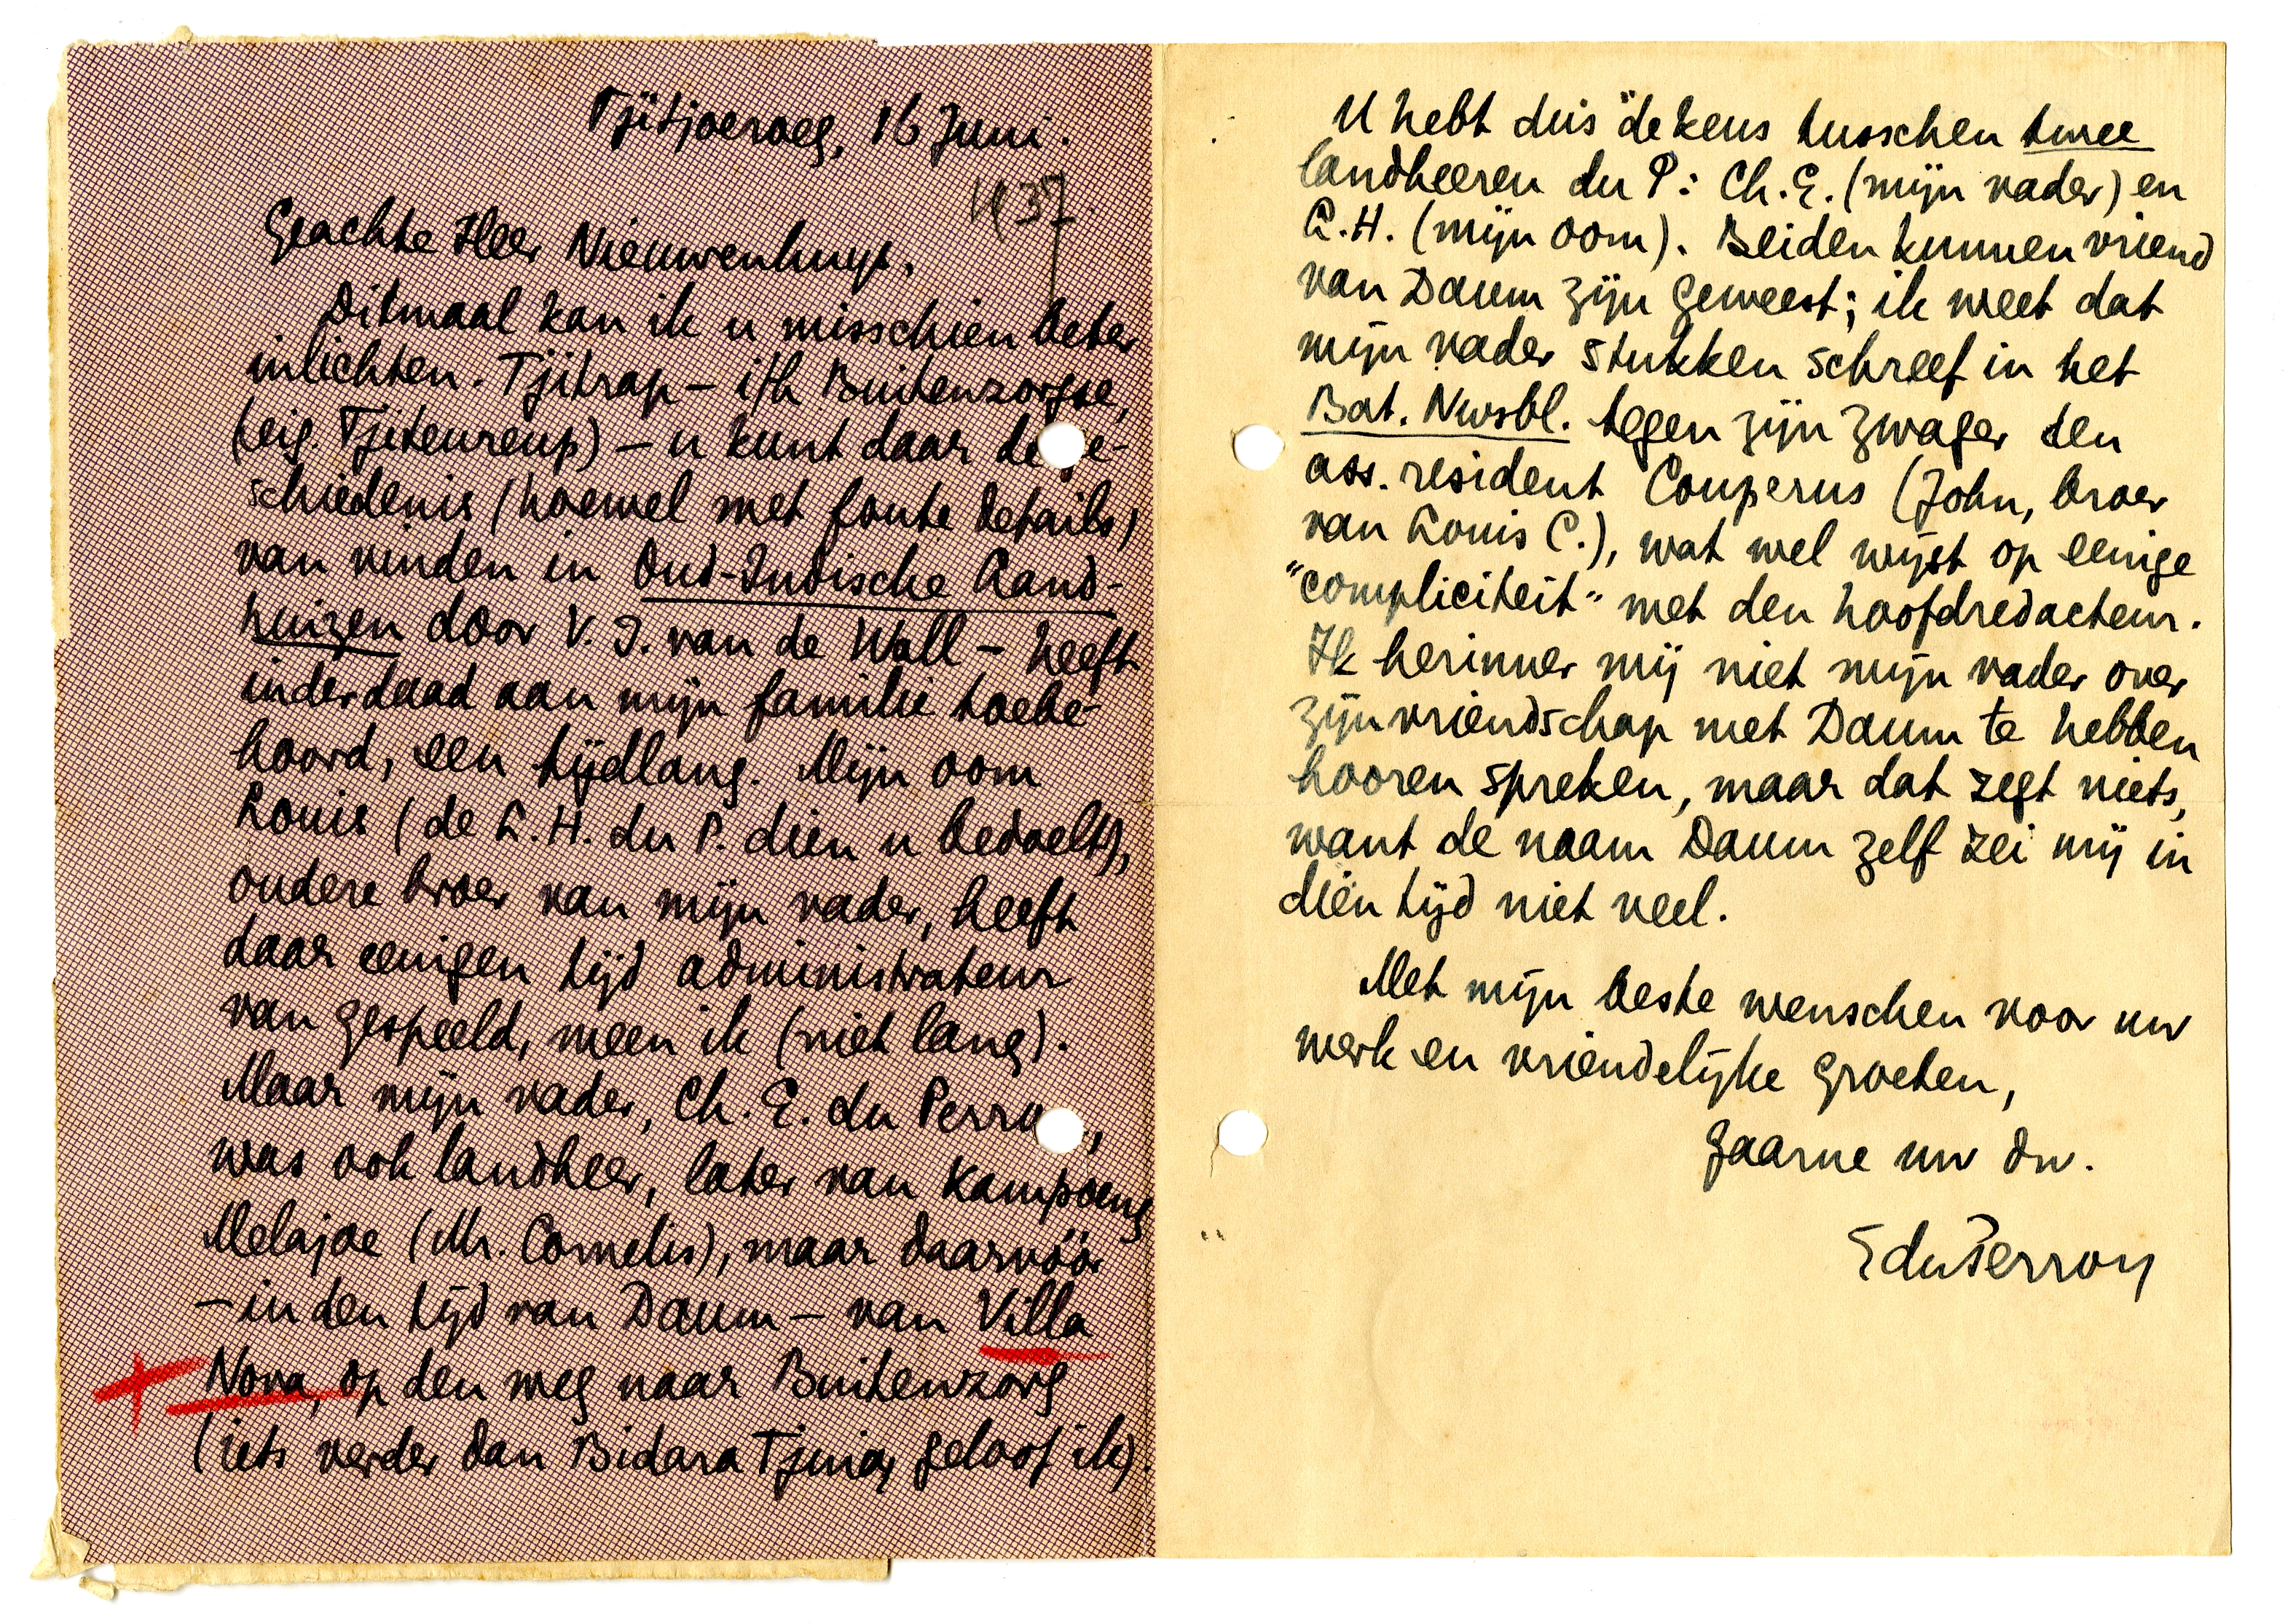 Tjitjoeroeg, 16 Juni.
1937
Geachte Heer Nieuwenhuys,
Ditmaal kan ik u misschien beter
inlichten. Tjitrap – i/h Buitenzorgse,
(eig. Tjiteureup) – u kunt daar de ge-
schiedenis (hoewel met foute details)
van vinden in Oud-Indische Land-
huizen door V. I. van de Wall – heeft
inderdaad aan mijn familie toebe-
hoord, een tijdlang. Mijn oom
Louis (de L. H. du P. dien u bedoelt),
oudere broer van mijn vader, heeft
daar eenigen tijd administrateur
van gespeeld, meen ik (niet lang).
Maar mijn vader, Ch. E. du Perron,
was ook landheer, later van Kampoeng
Melajoe (Mr. Cornelis), maar daarvóór
– in den tijd van Daum – van Villa
Nova, op den weg naar Buitenzorg
(iets verder dan Bidara Tjina, geloof ik).
U hebt dus de keus tusschen twee
landheeren du P: Ch. E. (mijn vader) en
L. H. (mijn oom). Beiden kunnen vriend
van Daum zijn geweest; ik weet dat
mijn vader stukken schreef in het
Bat. Nwsbl. tegen zijn zwager den
ass. resident Couperus (John, broer
van Louis C.), wat wel wijst op eenige
"compliciteit" met den hoofdredacteur.
Ik herinner mij niet mijn vader over
zijn vriendschap met Daum te hebben
hooren spreken, maar dat zegt niets,
want de naam Daum zelf zei mij in
dien tijd niet veel.
Met mijn beste wenschen voor uw
werk en vriendelijke groeten,
gaarne uw dw.
EduPerron